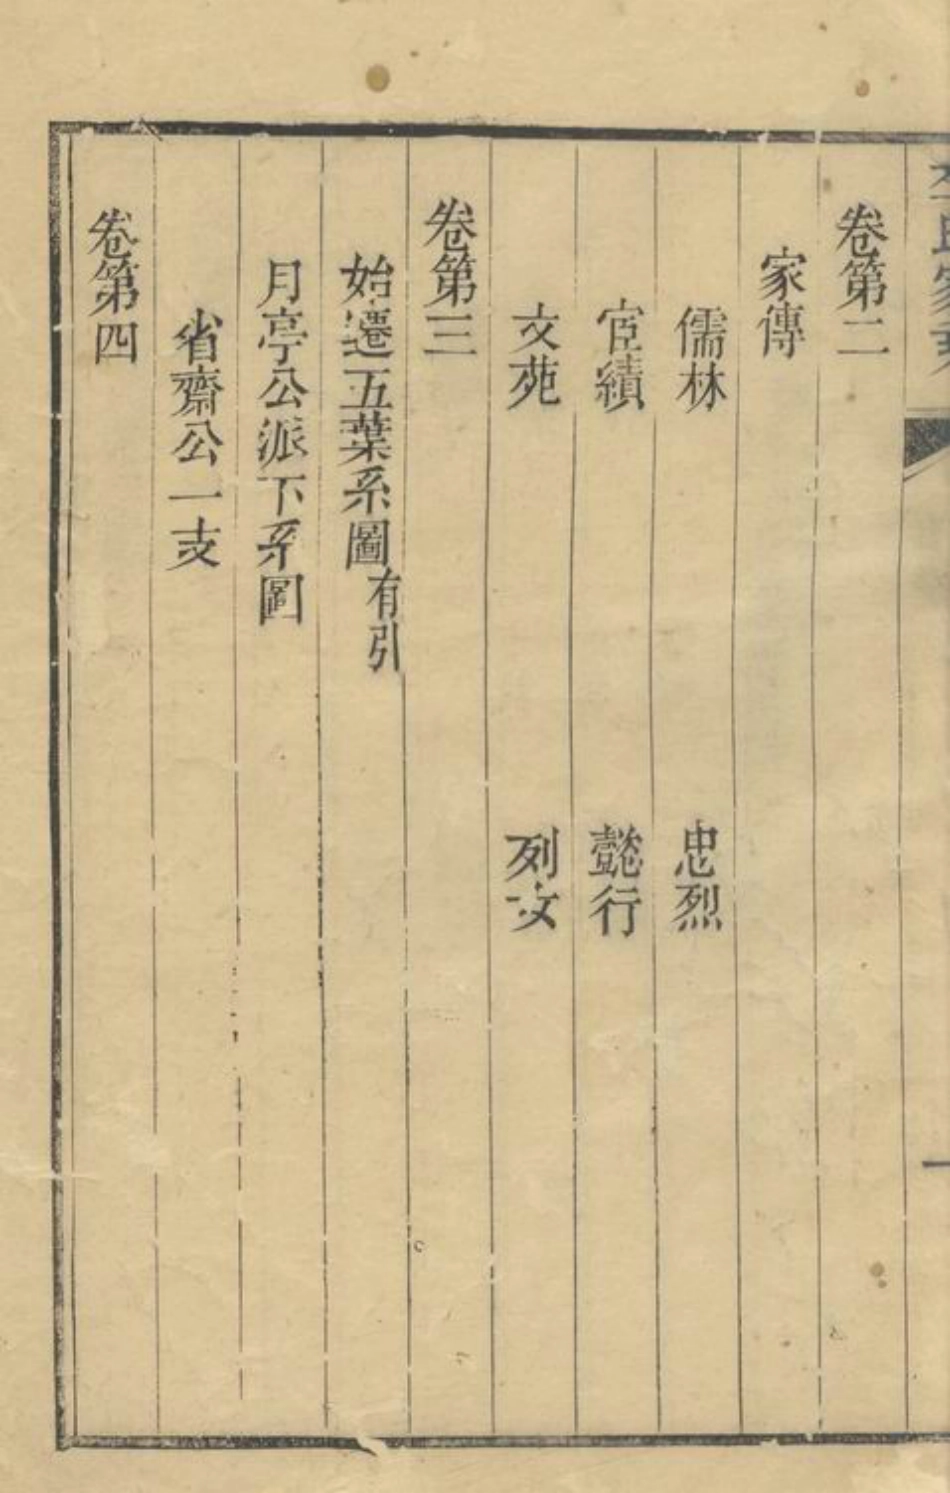 卷第二
家傳
儒林 忠烈
宦績 懿行
文苑 列女
卷第三
始遷五葉系圖有引
月亭公派下系圖
省齋公一支
卷第四